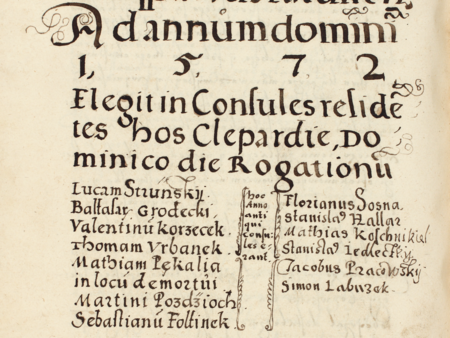 Ad annum domini
1, 5, 7 2
Elegit in Consules reside
tes hos Clepardie, Do
minico die Rogationū
Lucam Strunskij
Baltasar Grodecki
Valentinū Korzecek
Thomam Vrbanek
Mathiam Pękalia
in locū demortui
Martini Pozdzioch
Sebastianū Foltinek
hoc
Anno
anti
qui
consu
les e
rant
Florianus Sosna
Stanislaꝰ Hallar
Mathias Koschnikiel
Stanislaꝰ Iedlecky
Jacobus Pracowsky
Simon Labuzek